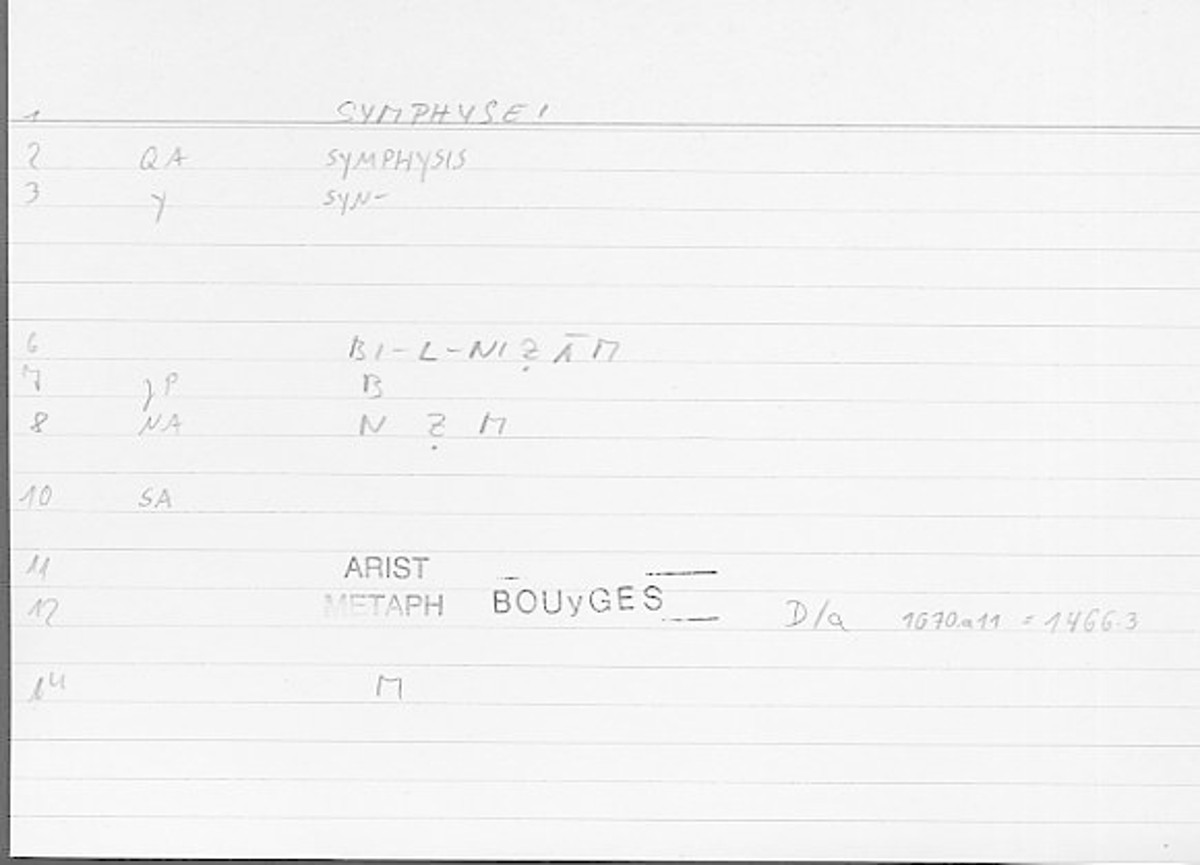 1 SYMPHYSEI
2 QA SYMPHYSIS
3 y SYN-
6 BI-L-NIẒĀM
7 JP B
8 NA N Ẓ M
10 SA
11 ARIST
12 METAPH BOUyGES D/a 1070.a11 = 1466.3
14 M